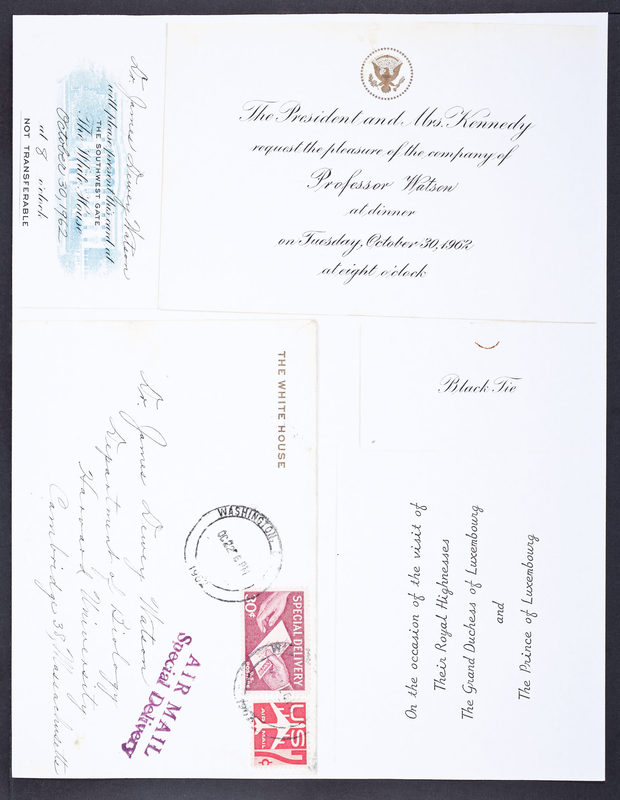 Dr. James Dewey Watson
will please present this card at
THE SOUTHWEST GATE
The White House
October 30, 1962
at 8 o'clock
NOT TRANSFERABLE
The President and Mrs. Kennedy
request the pleasure of the company of
Professor Watson
at dinner
on Tuesday, October 30, 1962
at eight o'clock
Black Tie
THE WHITE HOUSE
Dr. James Dewey Watson
Department of Biology
Harvard University
Cambridge 38, Massachusetts
AIR MAIL
Special Delivery
WASHINGTON
1962
30¢
SPECIAL DELIVERY
US
AIR MAIL
7¢
On the occasion of the visit of
Their Royal Highnesses
The Grand Duchess of Luxembourg
and
The Prince of Luxembourg